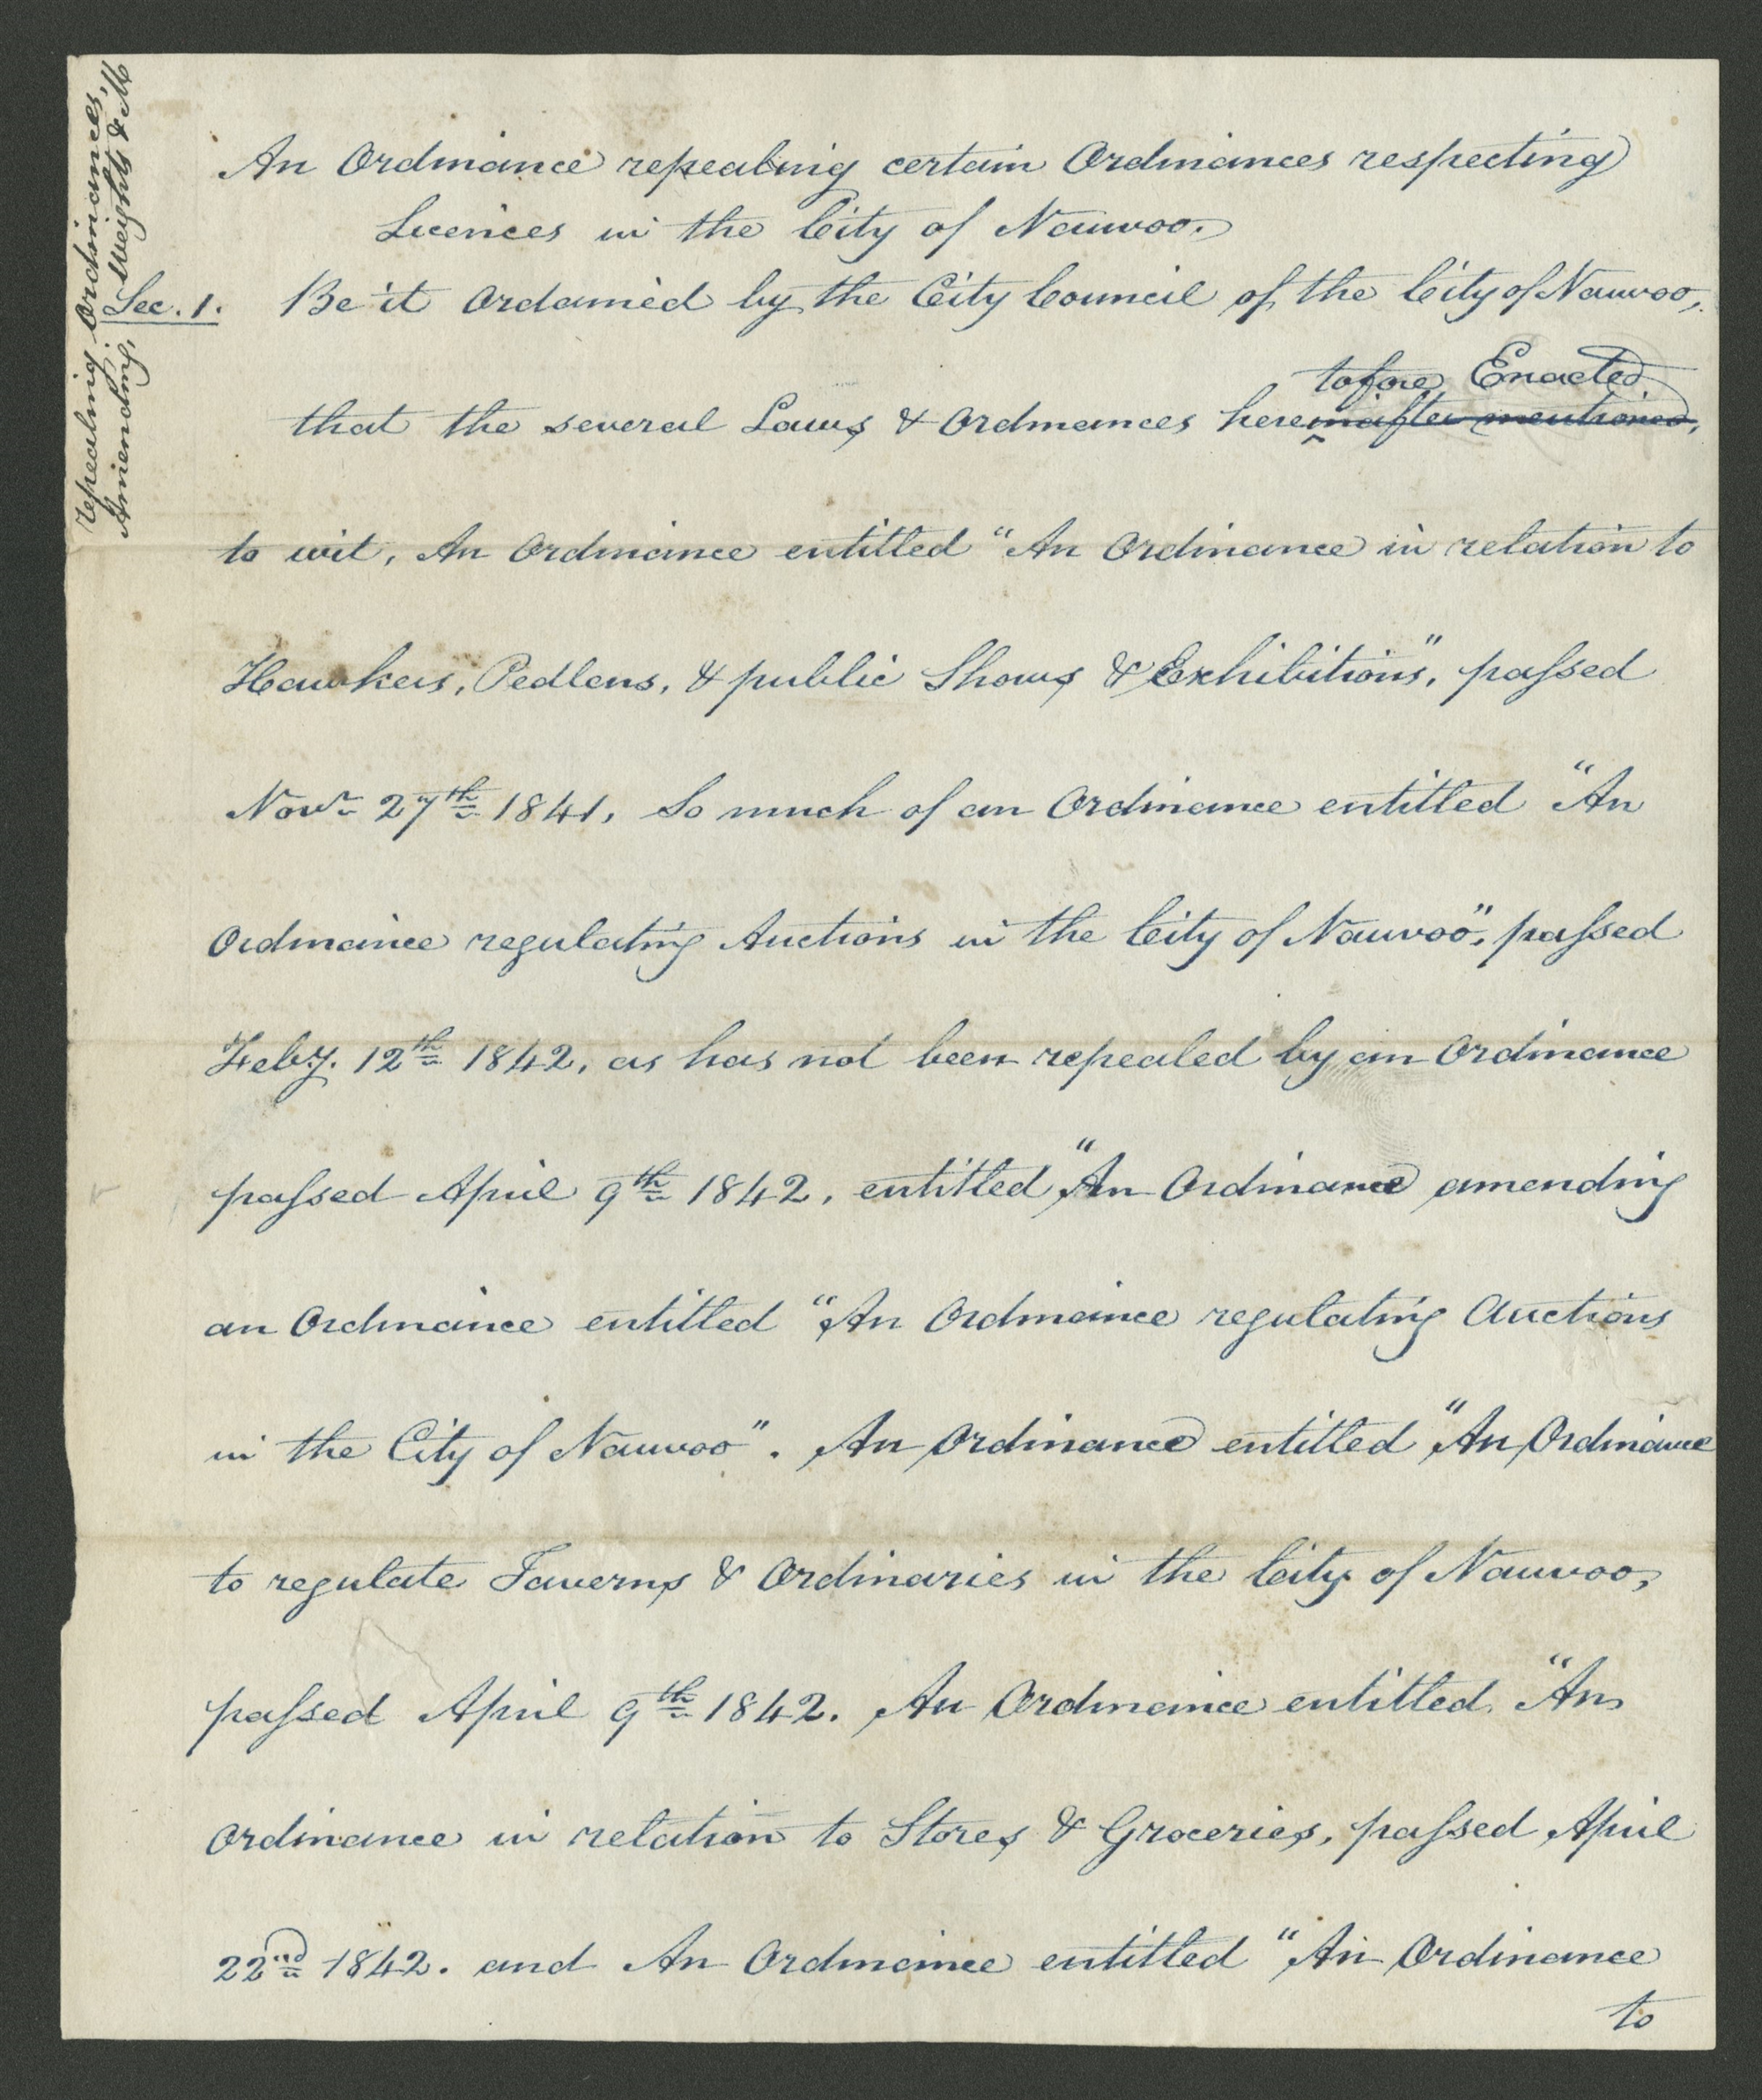 repealing Ordinances,
Amending, Weights & M
An Ordinance repealing certain Ordinances respecting
Licences in the City of Nauvoo.
Sec. 1. Be it Ordained by the City Council of the City of Nauvoo,
tofore Enacted
that the several Laws & Ordinances hereinafter mentioned,
to wit, An Ordinance entitled "An Ordinance in relation to
Hawkers, Pedlens, & public Shows & Exhibitions", passed
Novr 27th 1841, So much of an Ordinance entitled "An
Ordinance regulating Auctions in the City of Nauvoo", passed
Feby. 12th 1842, as has not been repealed by an Ordinance
passed April 9th 1842, entitled "An Ordinance amending
an Ordinance entitled "An Ordinance regulating Auctions
in the City of Nauvoo". An Ordinance entitled "An Ordinance
to regulate Taverns & Ordinaries in the City of Nauvoo,
passed April 9th 1842. An Ordinance entitled "An
Ordinance in relation to Stores & Groceries, passed April
22nd 1842. and An Ordinance entitled "An Ordinance
to